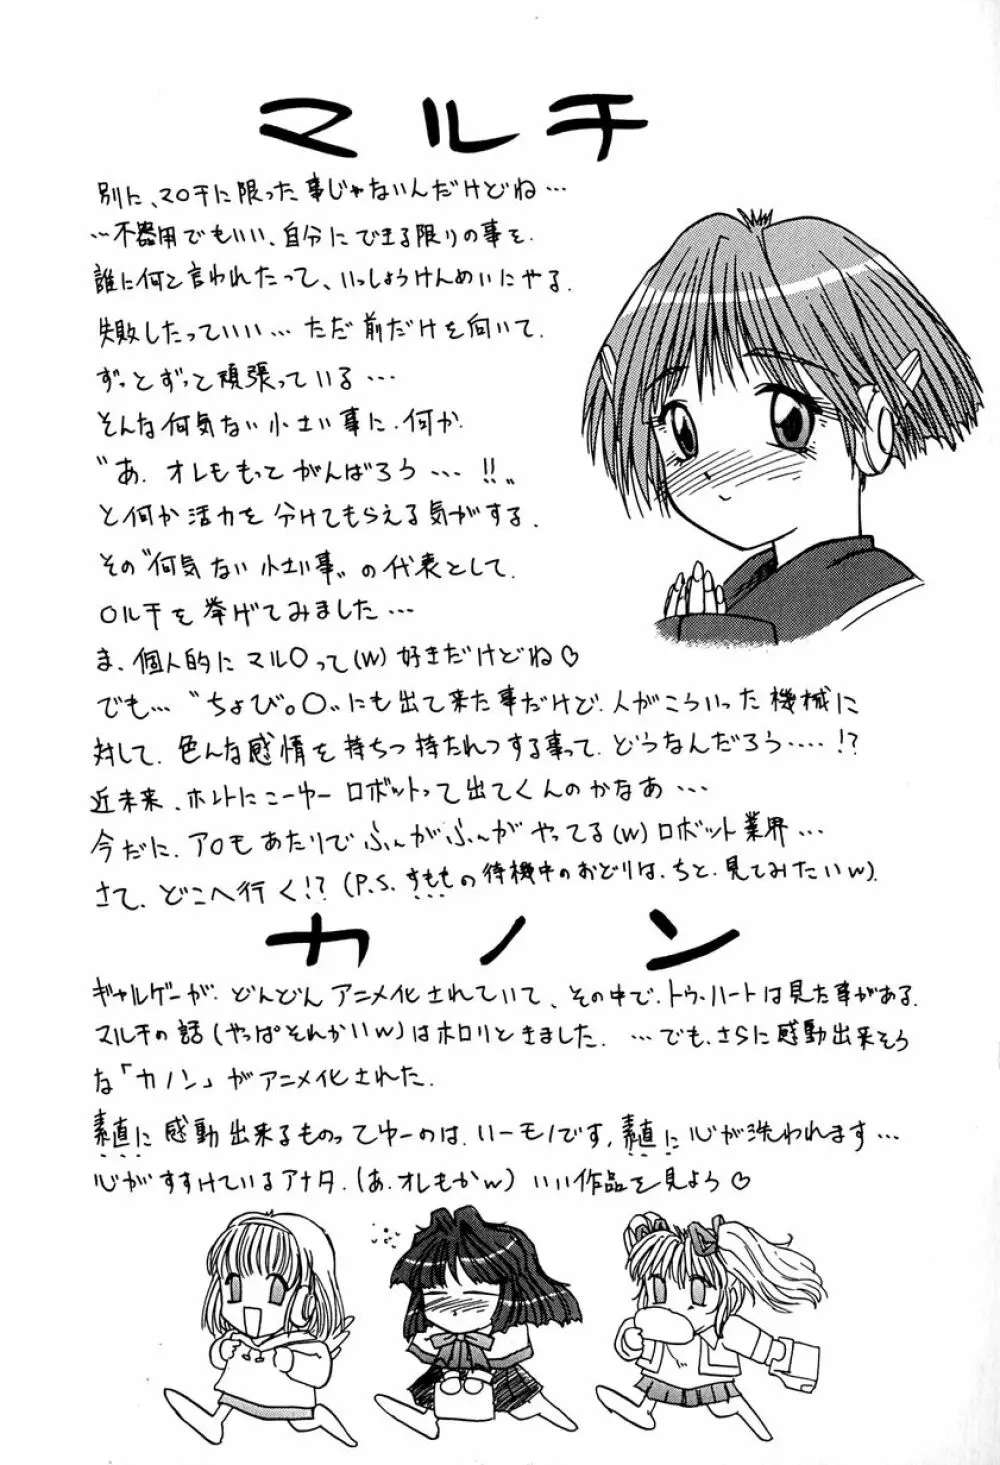 マルチ
別に、マ○チに限った事じゃないんだけどね…
…不器用でもいい、自分にできる限りの事を.
誰に何と言われたって、いっしょうけんめいにやる.
失敗したっていい…ただ前だけを向いて.
ずっとずっと頑張っている…
そんな何気ない小さい事に.何か.
"あ.オレももってがんばろう…!!"
と何か活力を分けてもらえる気がする.
その"何気ない小さい事"の代表として.
○ルチを挙げてみました…
ま、個人的にマル○って(w)好きだけどね♡
でも…"ちょび。○"にも出て来た事だけど.人がこういった機械に
対して.色んな感情を持ちつ持たれつする事って.どうなんだろう……!?
近未来、ホントにこーゆーロボットって出てくんのかなあ…
今だに.ア○もあたりでふんがふんがやってる(w)ロボット業界…
さて.どこへ行く!?(P.S.すももの待機中のおどりは.ちと.見てみたいw).
カノン
ギャルゲーが.どんどんアニメ化されていて、その中で.トゥ・ハートは見た事がある.
マルチの話(やっぱそれかいw)はホロリときました.…でも.さらに感動出来そう
な「カノン」がアニメ化された.
素直に感動出来るものってゆーのは.いーモノです.素直に心が洗われます…
心がすすけているアナタ.(あ.オレもかw)いい作品を見よう♡